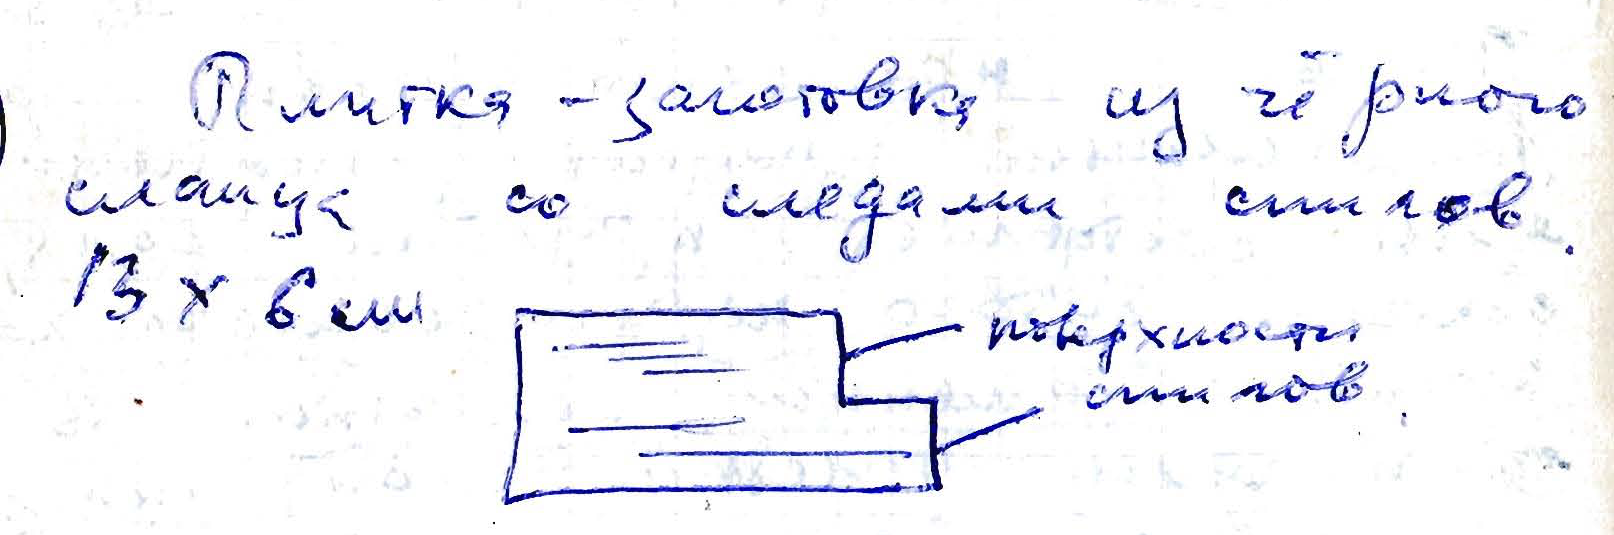 Плитка-заготовка из чёрного
сланца со следами спилов.
13 х 6 см
поверхности
спилов.